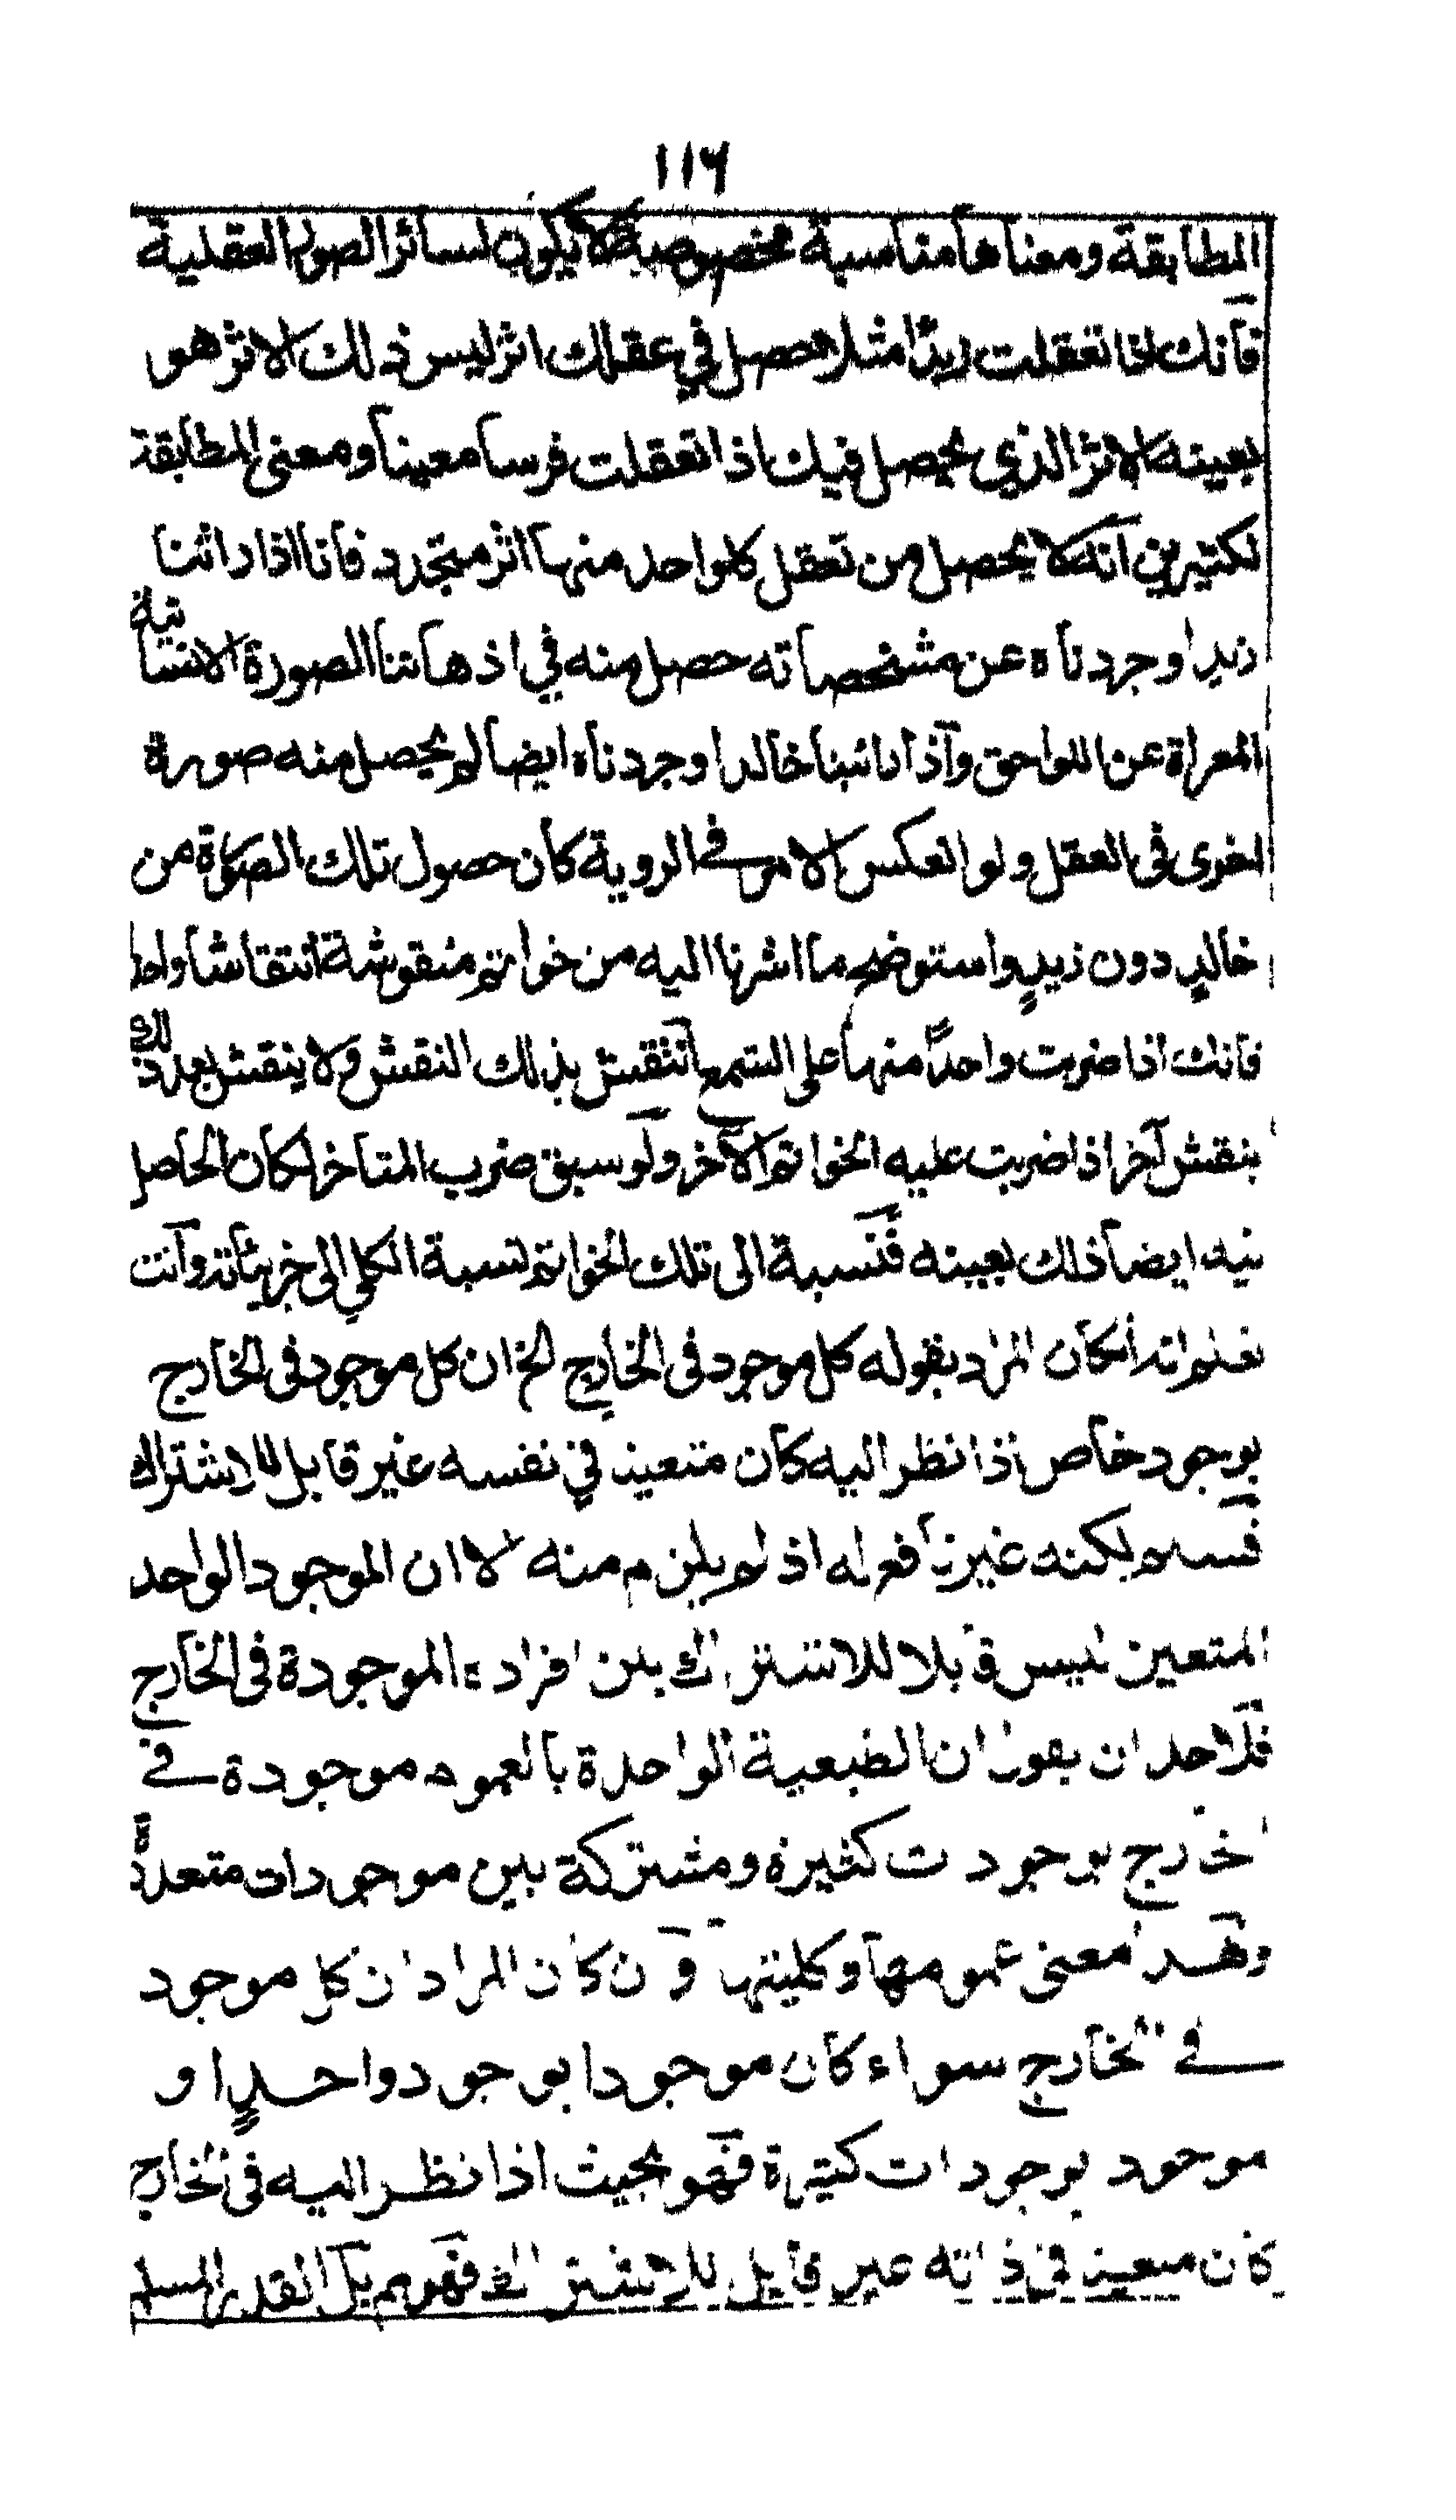 ١١٦
المطابقة ومعناها مناسبة مخصوصة لا يكون لسائر الصور العقلية
فانك اذا تعقلت زيدًا مثلا حصل في عقلك اثر ليس ذلك الاثر هو
بعينه الاثر الذي يحصل فيك اذا تعقلت فرسا معينا ومعنى المطابقة
لكثيرين انه لا يحصل من تعقل كلواحد منها اثر متجدد فانا اذا رائنا
زيدا وجردناه عن مشخصاته حصل منه في اذهاننا الصورة الانسانية
المعراة عن اللواحق وآذا رائينا خالدا وجردناه ايضا لم يحصل منه صورة
اخرى فى العقل ولو انعكس الامر فى الروية كان حصول تلك الصورة من
خالدٍ دون زيدٍ واستوضح ما اشرنا اليه من خواتم منقوشة انتقاشا واحدا
فانك اذا ضربت واحدًا منها على الشمع انتقش بذلك النقش ولا ينقش بعد ذلك
بنقش آخر اذا ضربت عليه الخواتم الآخر ولو سبق ضرب المتاخر لكان الحاصل
فيه ايضا ذلك بعينه فنسبة الى تلك الخواتم نسبة الكلي الى جزيئاته وآنت
تعلم انه انكان المراد بقوله كل موجود فى الخارج الخ ان كل موجود فى الخارج
بوجود خاص اذا نظر اليه كان متعينا في نفسه غير قابل للاشتراك
فمسلم لكنه غير نافع له اذ لم يلزم منه الا ان الموجود الواحد
المتعين ليس قابلا للاشتراك بين افراده الموجودة فى الخارج
فلاحد ان يقول ان الطبعية الواحدة بالعموم موجودة فى
الخارج بوجودات كثيرة ومشتركة بين موجودات متعددة
وهذا معنى عمومها وكليتها وان كان المراد ان كل موجود
فى الخارج سواء كان موجودا بوجود واحدٍ او
موجود بوجودات كثيرة فهو بحيث اذا نظر اليه فى الخارج
كان متعينا فى ذاته غير قابل للاشتراك فهو بل القدر المسلم